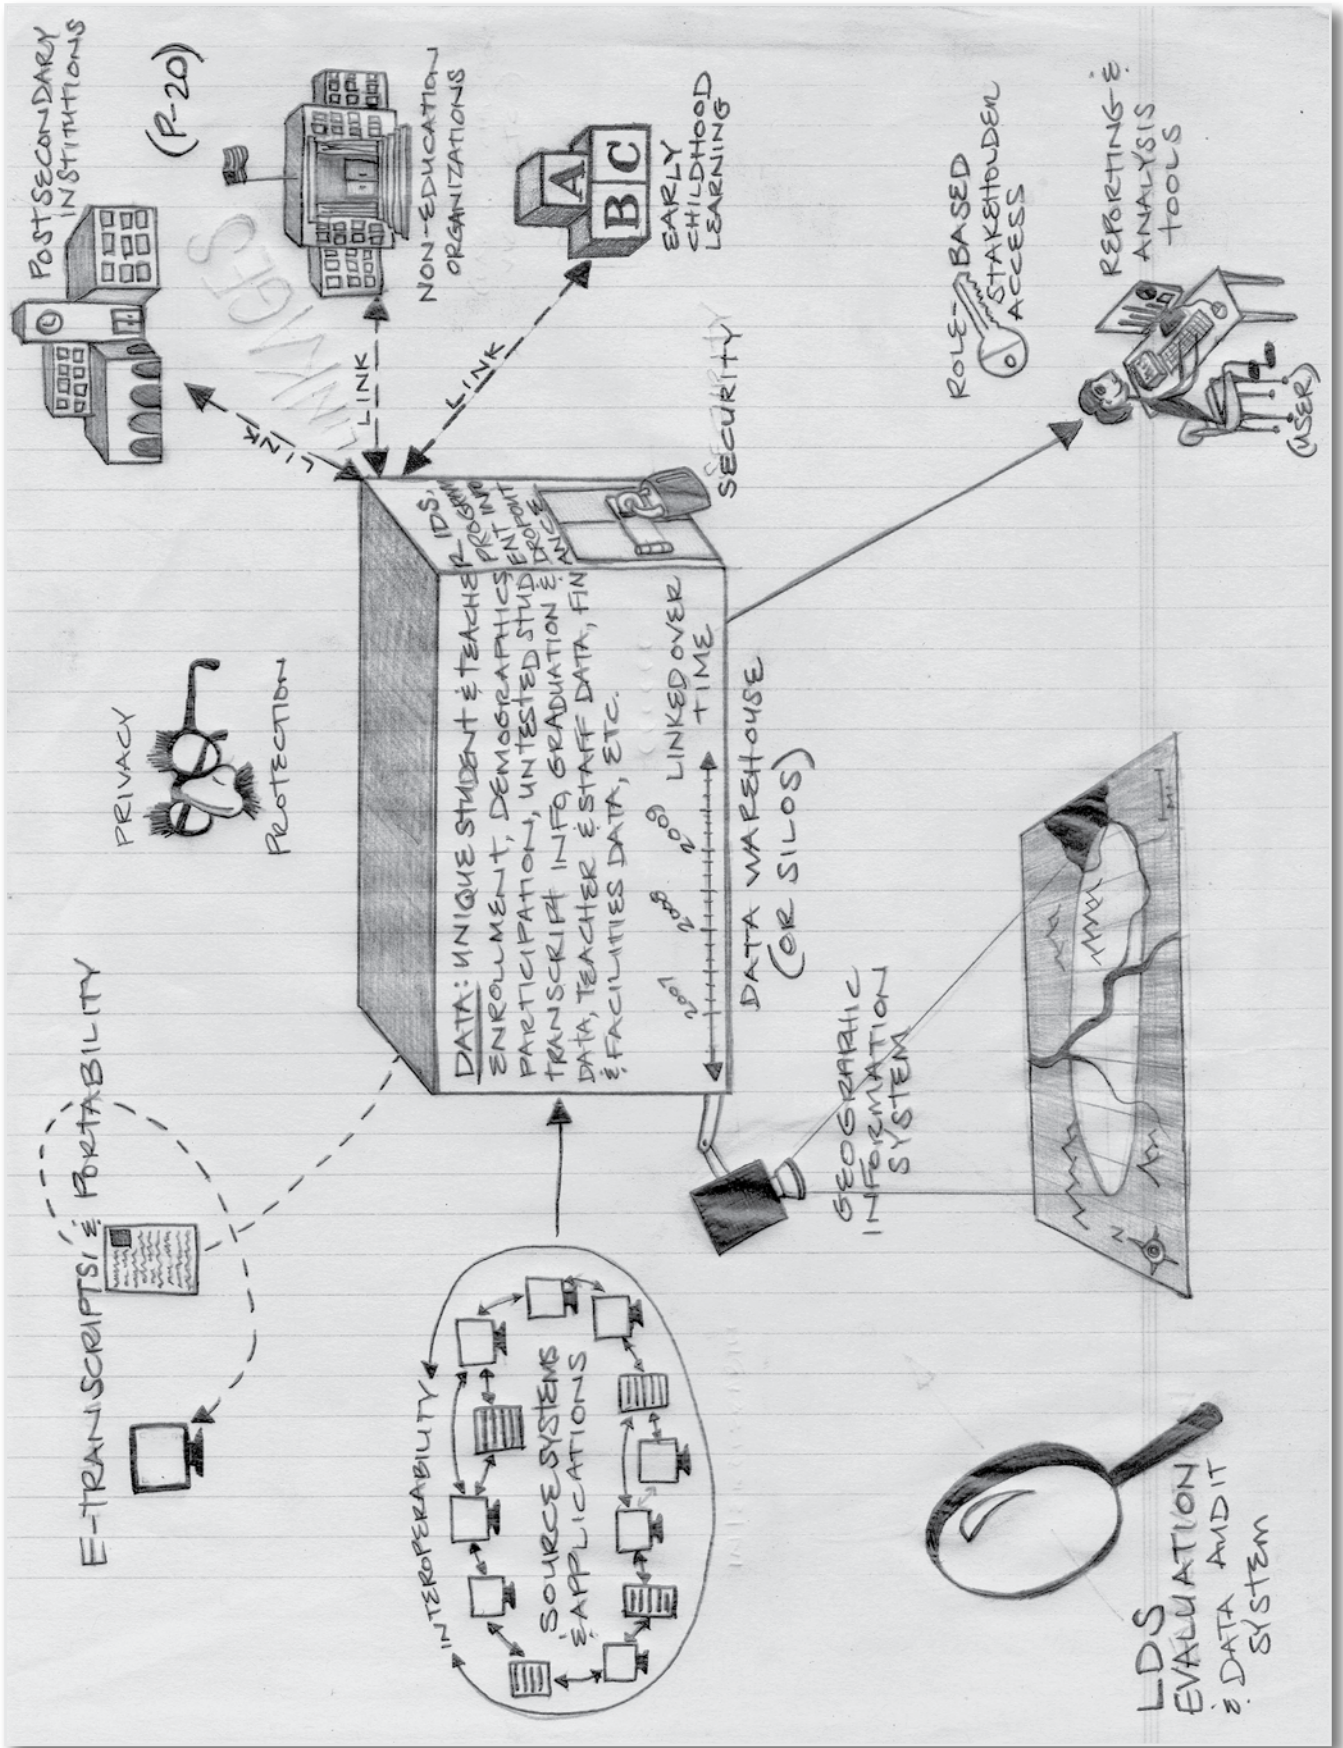 E-TRANSCRIPTS & PORTABILITY
PRIVACY
PROTECTION
POSTSECONDARY
INSTITUTIONS
(P-20)
LINKAGES
NON-EDUCATION
ORGANIZATIONS
EARLY
CHILDHOOD
LEARNING
A
B C
LINK
LINK
LINK
INTEROPERABILITY
SOURCE SYSTEMS
& APPLICATIONS
DATA: UNIQUE STUDENT & TEACHER IDS,
ENROLLMENT, DEMOGRAPHICS, PROGRAM
PARTICIPATION, UNTESTED STUDENT INFO
TRANSCRIPT INFO, GRADUATION & DROPOUT
DATA, TEACHER & STAFF DATA, FINANCE
& FACILITIES DATA, ETC.
2007 2008 2009
LINKED OVER
TIME
SECURITY
DATA WAREHOUSE
(OR SILOS)
GEOGRAPHIC
INFORMATION
SYSTEM
N
ROLE-BASED
STAKEHOLDER
ACCESS
REPORTING &
ANALYSIS
TOOLS
(USER)
LDS
EVALUATION
& DATA AUDIT
SYSTEM